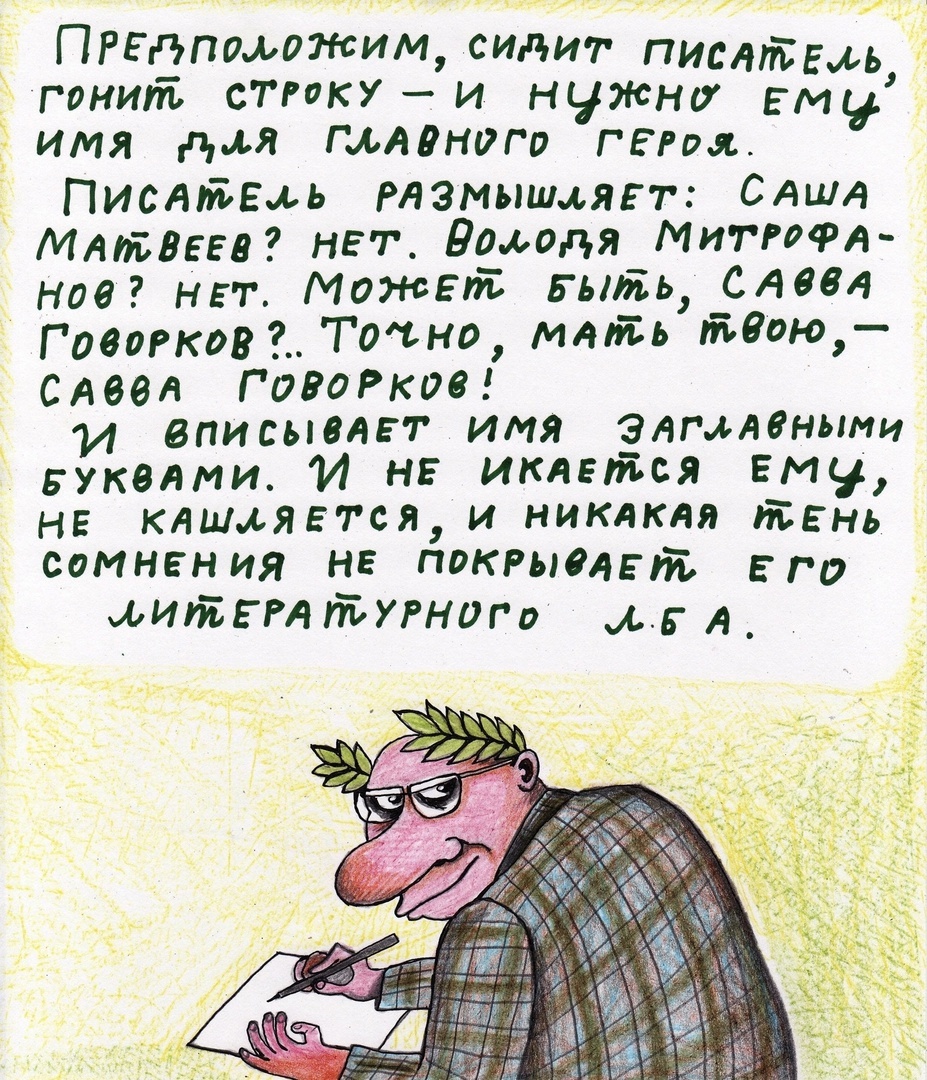 Предположим, сидит писатель,
гонит строку – и нужно ему
имя для главного героя.
Писатель размышляет: Саша
Матвеев? нет. Володя Митрофа-
нов? нет. Может быть, Савва
Говорков?.. Точно, мать твою,–
Савва Говорков!
И вписывает имя заглавными
буквами. И не икается ему,
не кашляется, и никакая тень
сомнения не покрывает его
литературного лба.